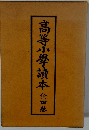 高等小學讀本 卷四